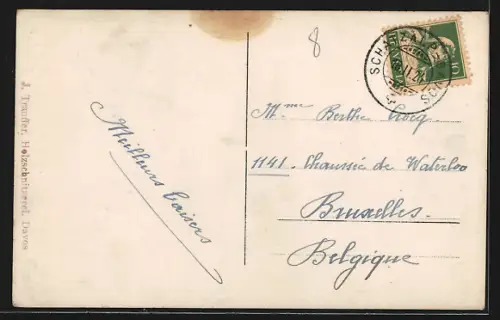 J. Trauffer, Holzschnitzerei, Davos
Meilleurs baisers
8
SCHATZALP
10
Mme Berthe Cocq
1141 - Chaussée de Waterloo
Bruxelles
Belgique